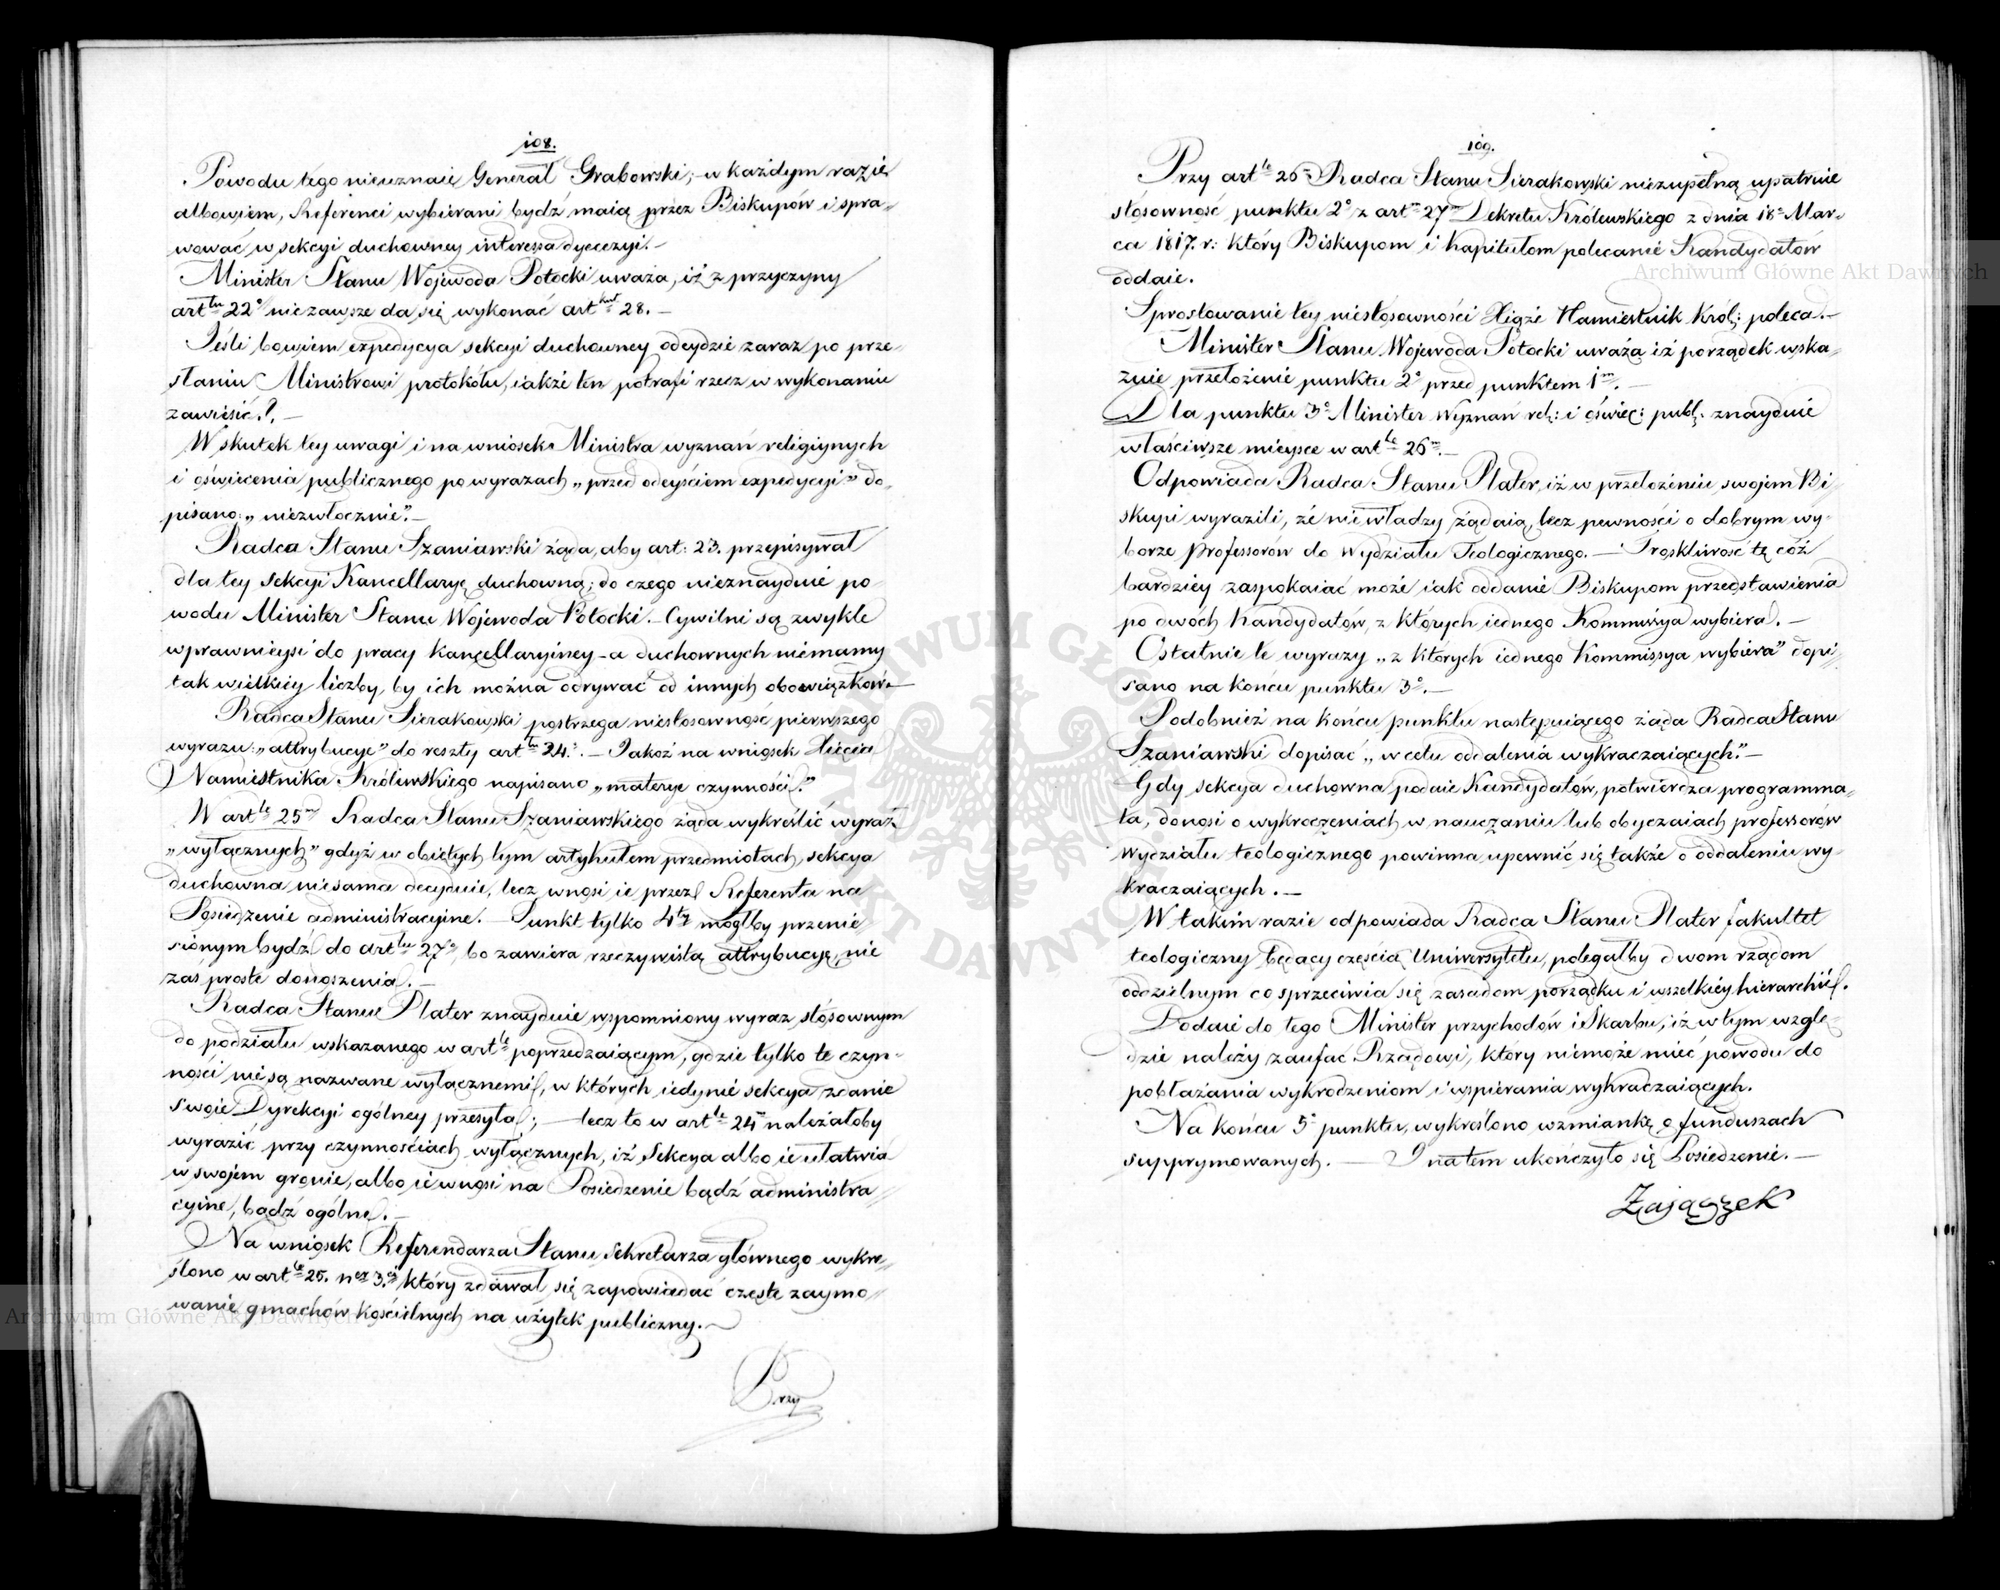 108.
Powodu tego nieuznaie Generał Grabowski; w każdym razie
albowiem, Referenci wybierani bydź maią przez Biskupów i spra-
wować w sekcyi duchowney interessa dyecezyi.-
Minister Stanu Wojewoda Potocki uważa, iż z przyczyny
art<sup>łu</sup> 22° niezawsze da się wykonać art<sup>kuł</sup> 28. -
Jeśli bowiem expedycya sekcyi duchowney odeydzie zaraz po prze-
słaniu Ministrowi protokółu, iakże ten potrafi rzecz w wykonaniu
zawiesić?. -
W skutek tey uwagi i na wniosek Ministra wyznań religiynych
i oświecenia publicznego po wyrazach „przed odeyściem expedycyi" do-
pisano: „niezwłocznie". -
Radca Stanu Szaniawski żąda, aby art: 23. przepisywał
dla tey sekcyi Kancellaryę duchowną; do czego nieznayduie po-
wodu Minister Stanu Wojewoda Potocki. - Cywilni są zwykle
wprawnieysi do pracy kancellaryiney - a duchownych niemamy
tak wielkiey liczby, by ich można odrywać od innych obowiązków. -
Radca Stanu Sierakowski postrzega niestosowność pierwszego
wyrazu: „attrybucye" do reszty art<sup>łu</sup> 24.° - Jakoż na wniosek Xięcia
Namiestnika Królewskiego napisano „materye czynności."
W art<sup>le</sup> 25<sup>m</sup> Radca Stanu Szaniawskiego żąda wykreślić wyraz
„wyłącznych" gdyż w obiętych tym artykułem przedmiotach, sekcya
duchowna niesama decyduie, lecz wnosi ie przez Referenta na
Posiedzenie administracyine. - Punkt tylko 4<sup>ty</sup> mógłby przenie-
sionym bydź do art<sup>łu</sup> 27°, bo zawiera rzeczywistą attrybucyę, nie
zaś proste donoszenia. -
Radca Stanu Plater znayduie wspomniony wyraz stósownym
do podziału wskazanego w art<sup>le</sup> poprzedzaiącym, gdzie tylko te czyn-
ności nie są nazwane wyłącznemi, w których iedynie sekcya zdanie
swoie Dyrekcyi ogólney przesyła; - lecz to w art<sup>le</sup> 24<sup>m</sup> należałoby
wyrazić przy czynnościach wyłącznych, iż Sekcya albo ie ułatwia
w swojem gronie, albo ie wnosi na Posiedzenie bądź administra-
cyine, bądź ogólne. -
Na wniosek Referendarza Stanu Sekretarza głównego wykre-
ślono w art<sup>le</sup> 25. n<sup>er</sup> 3.<sup>ci</sup> który zdawał się zapowiadać częste zaymo-
wanie gmachów kościelnych na użytek publiczny. -
Przy
109.
Przy art<sup>le</sup> 26<sup>m</sup> Radca Stanu Sierakowski niezupełną upatruie
stosowność punktu 2° z art<sup>m</sup> 27<sup>m</sup> Dekretu Królewskiego z dnia 18° Mar-
ca 1817. r: który Biskupom i kapitułom polecanie Kandydatów
oddaie.
Sprostowanie tey niestosowności Xiąże Namiestnik Król: poleca. -
Minister Stanu Wojewoda Potocki uważa iż porządek wska-
zuie przełożenie punktu 2° przed punktem 1<sup>m</sup>. -
Dla punktu 3° Minister Wyznań rel: i oświec: publ: znayduie
właściwsze mieysce w art<sup>le</sup> 26<sup>m</sup>. -
Odpowiada Radca Stanu Plater, iż w przełożeniu swojem Bi-
skupi wyrazili, że nie władzy żądaią, lecz pewności o dobrym wy-
borze Professorów do Wydziału Teologicznego. - Troskliwość tę cóż
bardziey zaspokaiać może iak oddanie Biskupom przedstawienia
po dwóch Kandydatów, z których iednego Kommissya wybiera. -
Ostatnie te wyrazy „z których iednego Kommissya wybiera" dopi-
sano na końcu punktu 3°. -
Podobnież na końcu punktu następuiącego żąda Radca Stanu
Szaniawski dopisać „w celu oddalenia wykraczaiących." -
Gdy sekcya duchowna podaie Kandydatów, potwierdza programma-
ta, donosi o wykroczeniach w nauczaniu lub obyczaiach professorów
Wydziału teologicznego powinna upewnić się także o oddaleniu wy-
kraczaiących. -
W takim razie odpowiada Radca Stanu Plater fakultet
teologiczny będący częścią Uniwersytetu, polegałby dwom rządom
oddzielnym co sprzeciwia się zasadom porządku i wszelkiey hierarchii.
Dodaie do tego Minister przychodów i Skarbu, iż w tym wzglę-
dzie należy zaufać Rządowi, który niemoże mieć powodu do
pobłażania wykrodzeniom i wspierania wykraczaiących.
Na końcu 5° punktu, wykreślono wzmiankę o funduszach
supprymowanych. - I na tem ukończyło się Posiedzenie. -
Zajączek
Archiwum Główne Akt Dawnych
Archiwum Główne Akt Dawnych
ARCHIWUM GŁÓWNE AKT DAWNYCH